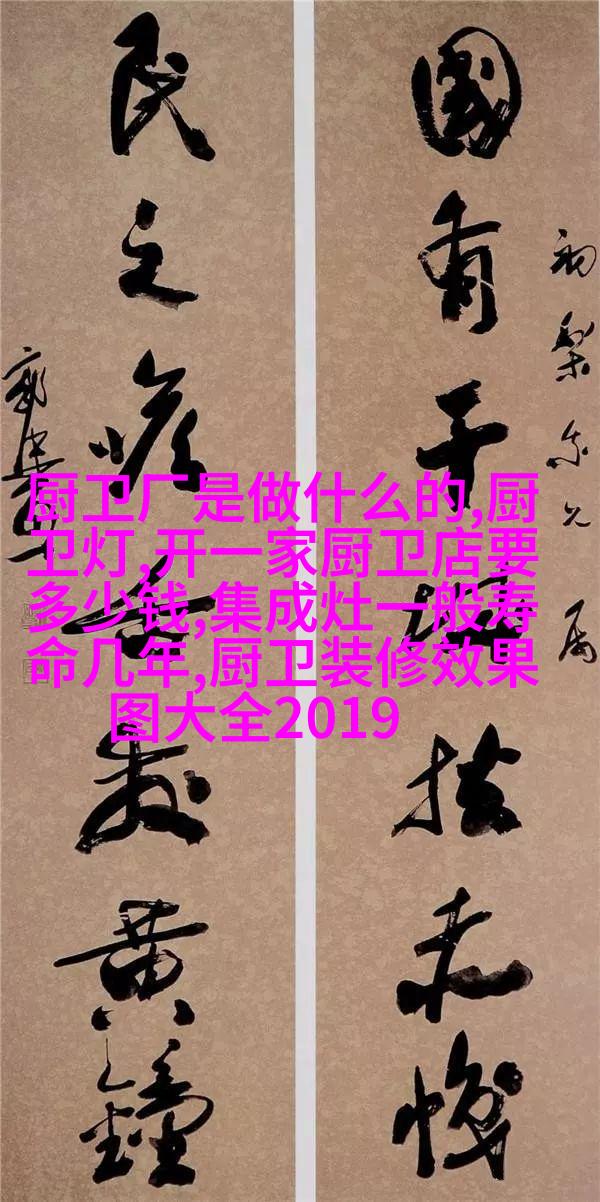 國有干城扶赤幟
民之喉舌發黃鐘
厨卫厂是做什么的,厨
卫灯,开一家厨卫店要
多少钱,集成灶一般寿
命几年,厨卫装修效果
图大全2019